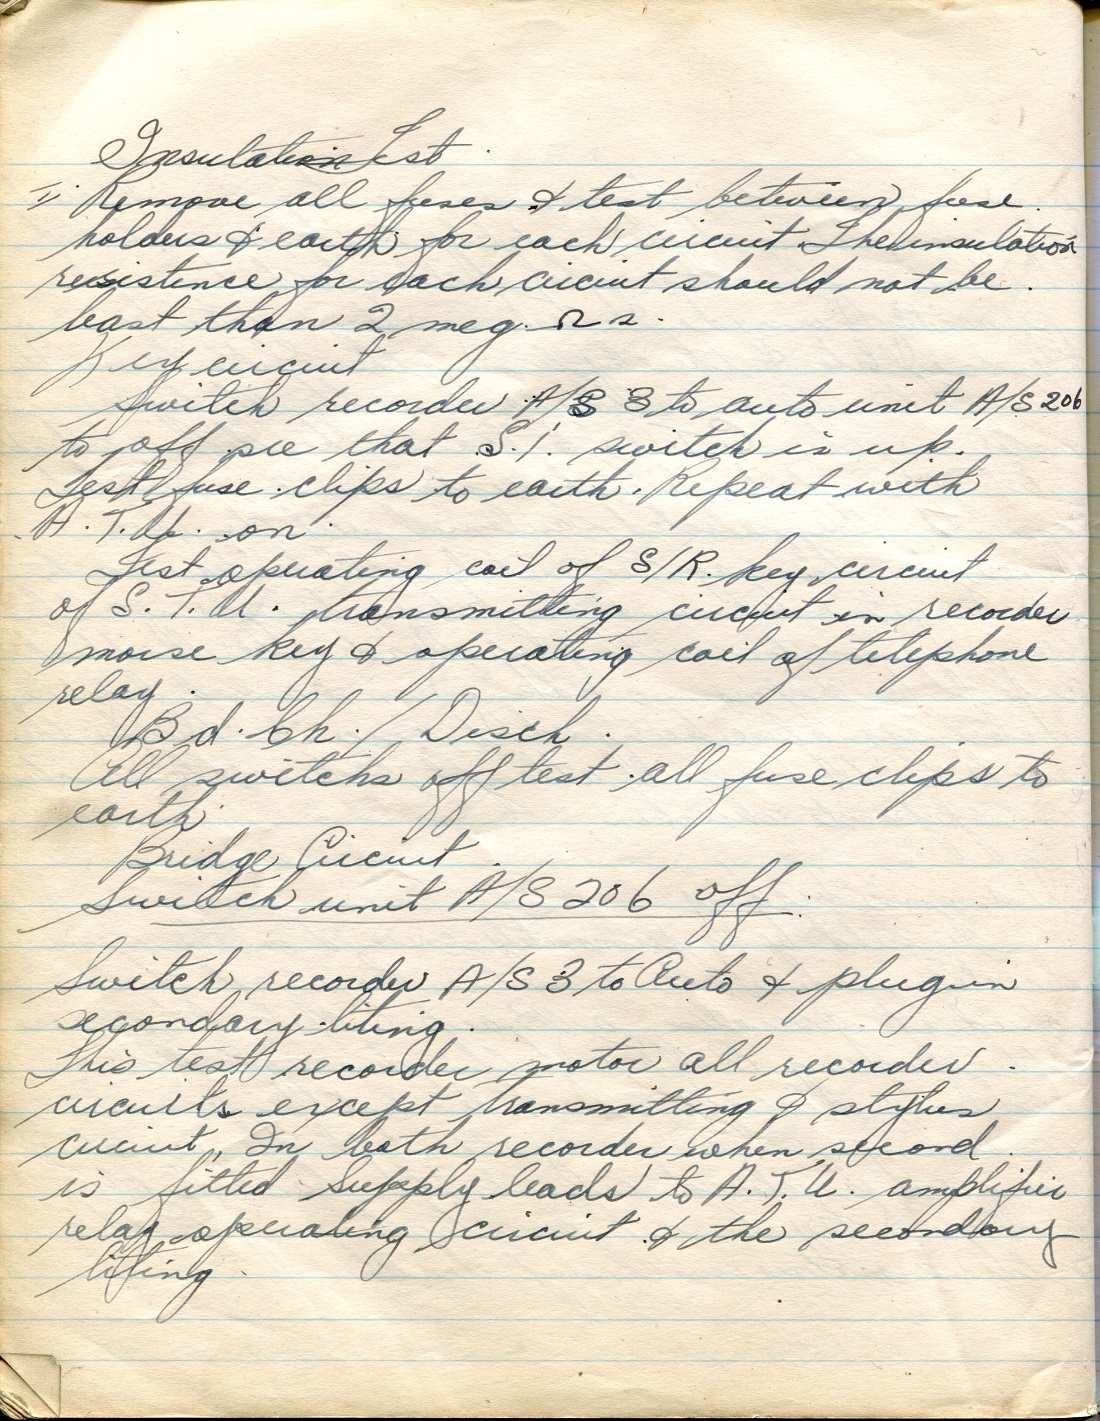 Insulation Test.
1. Remove all fuses & test between fuse
holders & earth for each circuit The insulation
resistence for each circuit should not be
least than 2 meg. Ω s.
Key circuit
Switch recorder A/S 3 to auto unit A/S 206
to off see that S.1. switch is up.
Test fuse clips to earth. Repeat with
A.T.U. on.
Test operating coil of S/R. key circuit
of S.T.U. transmitting circuit in recorder
morse key & operating coil of telephone
relay.
Bd. Ch. / Disch.
All switchs off test all fuse clips to
earth
Bridge Circuit.
Switch unit A/S 206 off.
Switch recorder A/S 3 to Auto & plug in
secondary
This test recorder motor all recorder
circuits except transmitting & stylus
circuit,, In both recorder when second
is fitted Supply leads to A.T.U. amplifier
relay operating circuit & the secondary